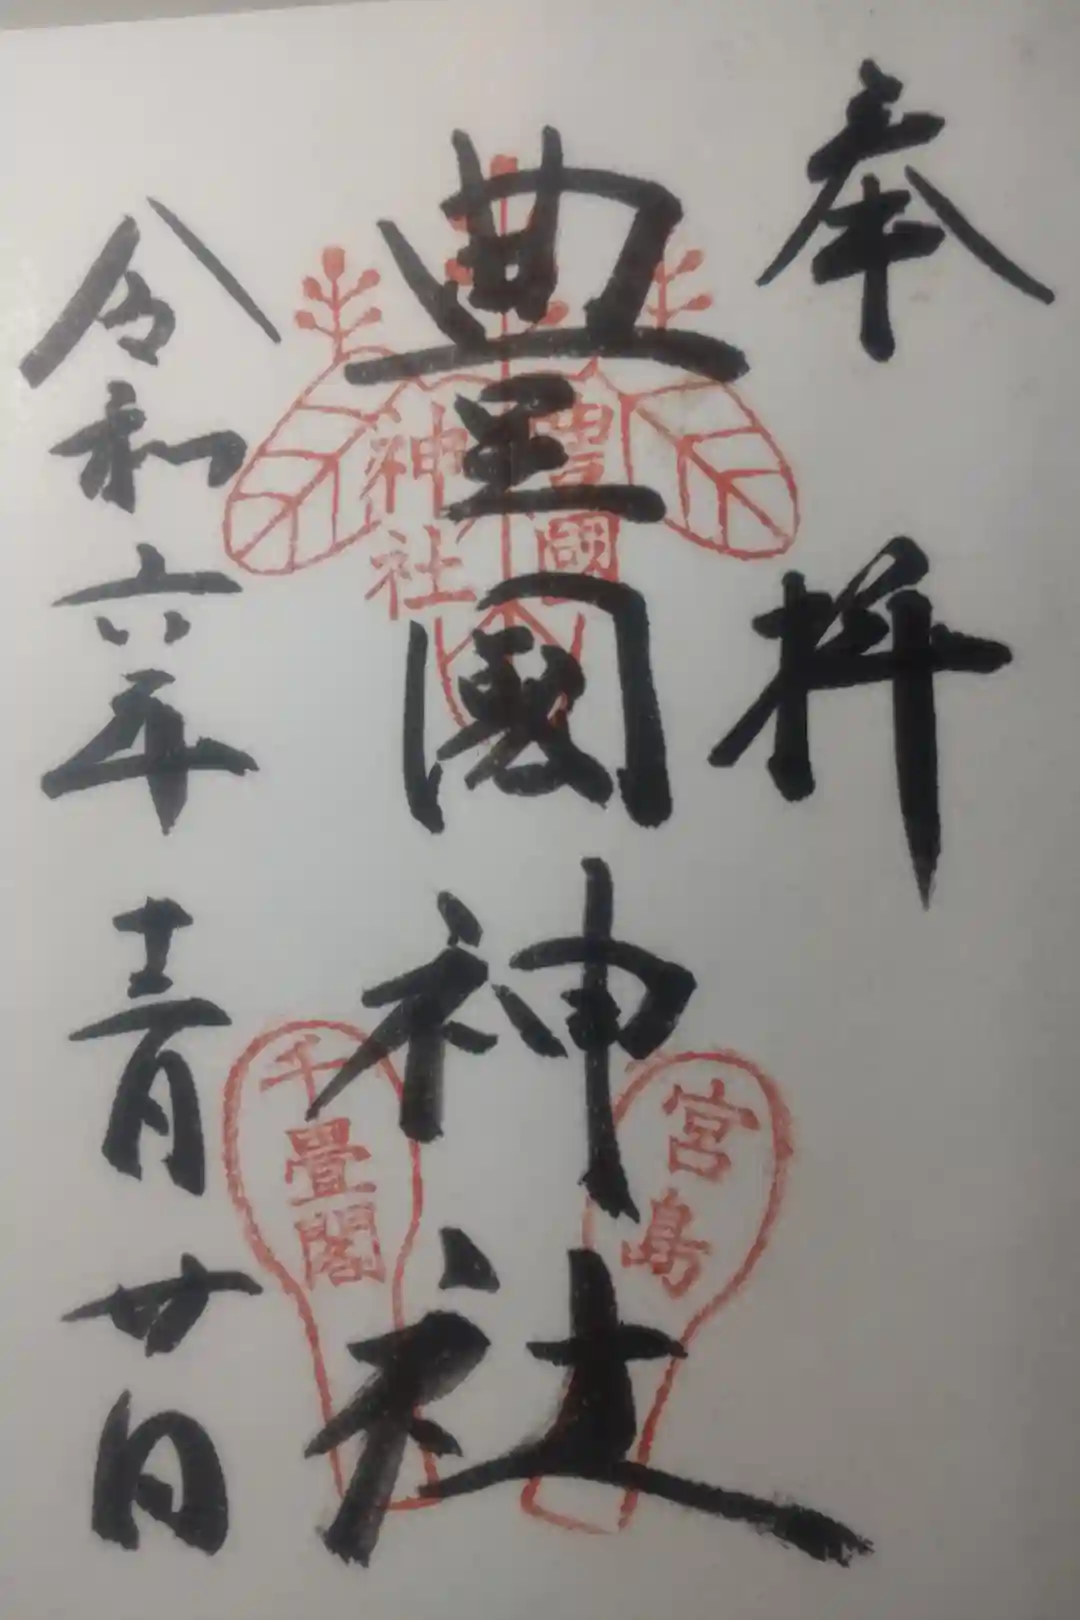 奉拝
豊國神社
令和六年十二月廿日
豊國
神社
宮島
千畳閣